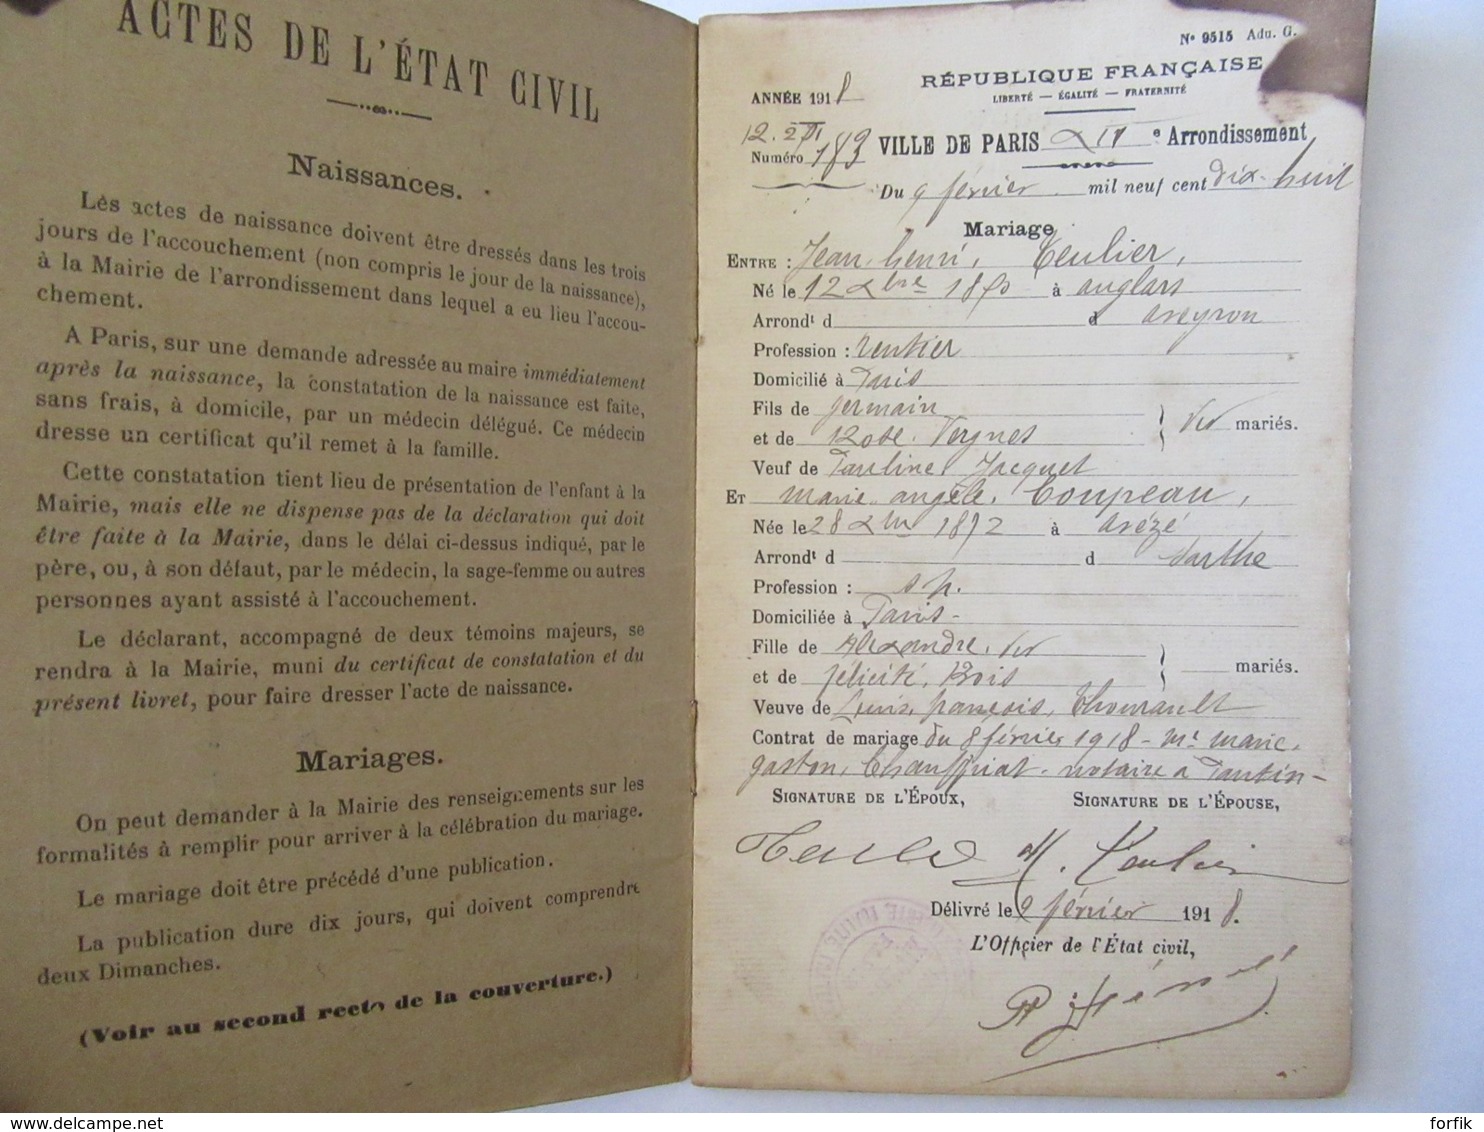 ACTES DE L'ÉTAT CIVIL
Naissances.
Les actes de naissance doivent être dressés dans les trois
jours de l'accouchement (non compris le jour de la naissance),
à la Mairie de l'arrondissement dans lequel a eu lieu l'accou-
chement.
A Paris, sur une demande adressée au maire immédiatement
après la naissance, la constatation de la naissance est faite,
sans frais, à domicile, par un médecin délégué. Ce médecin
dresse un certificat qu'il remet à la famille.
Cette constatation tient lieu de présentation de l'enfant à la
Mairie, mais elle ne dispense pas de la déclaration qui doit
être faite à la Mairie, dans le délai ci-dessus indiqué, par le
père, ou, à son défaut, par le médecin, la sage-femme ou autres
personnes ayant assisté à l'accouchement.
Le déclarant, accompagné de deux témoins majeurs, se
rendra à la Mairie, muni du certificat de constatation et du
présent livret, pour faire dresser l'acte de naissance.
Mariages.
On peut demander à la Mairie des renseignements sur les
formalités à remplir pour arriver à la célébration du mariage.
Le mariage doit être précédé d'une publication.
La publication dure dix jours, qui doivent comprendre
deux Dimanches.
(Voir au second recto de la couverture.)
N° 9515 Adu. G.
RÉPUBLIQUE FRANÇAISE
LIBERTÉ — ÉGALITÉ — FRATERNITÉ
ANNÉE 1918
Numéro 183
VILLE DE PARIS e Arrondissement
Du 9 février mil neuf cent dix-huit
Mariage
ENTRE : Jean, henri, Teulier,
Né le 12 Xbre 1870 à anglars
Arrondt d d aveyron
Profession : rentier
Domicilié à Paris
Fils de germain
et de Rose. Veynes dcd mariés.
Veuf de Pauline Jacquet
ET marie angèle, Coupeau,
Née le 28 Xbre 1872 à avézé
Arrondt d d Sarthe
Profession : s p.
Domiciliée à Paris-
Fille de Alexandre, dcd
et de félicité, Bois mariés.
Veuve de Louis, françois, Thourault
Contrat de mariage du 8 février 1918 - Me marie,
gaston, notaire à Pantin-
SIGNATURE DE L'ÉPOUX, SIGNATURE DE L'ÉPOUSE,
Teulier M. Teulier
Délivré le 9 février 1918.
L'Officier de l'État civil,
forfik